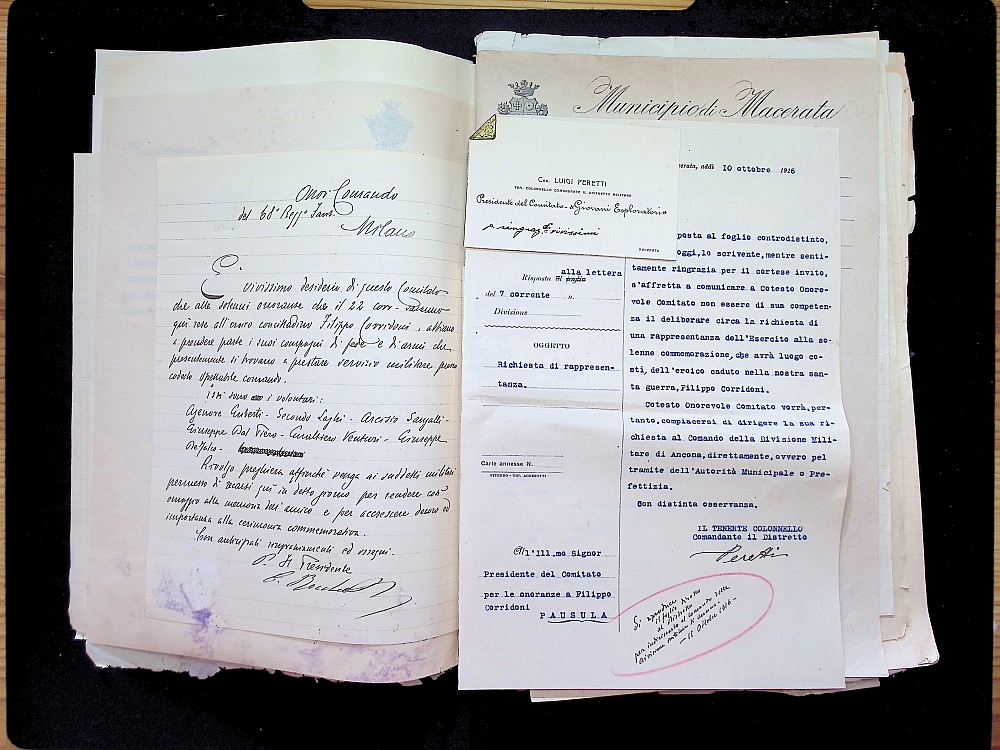 Onor. Comando
del 68° Regg.° Fant.
Milano
È vivissimo desiderio di questo Comitato
che alle solenni onoranze che il 22 corr. saranno
qui rese all'eroico concittadino Filippo Corridoni, abbiano
a prendere parte i suoi compagni di fede e d'armi che
presentemente si trovano a prestare servizio militare presso
codesto spettabile comando.
Essi sono i volontari:
Agenore Guberti - Secondo Laghi - Ariosto Sangalli -
Giuseppe Dal Piero - Gualtiero Venturi - Giuseppe
De Falco -
Rivolgo preghiera affinché venga ai suddetti militari
permesso di recarsi qui in detto giorno per rendere così
omaggio alla memoria dell'amico e per accrescere decoro ed
importanza alla cerimonia commemorativa.
Con anticipati ringraziamenti ed ossequi.
P. Il Presidente
Municipio di Macerata
Cav. LUIGI PERETTI
TEN. COLONNELLO COMANDANTE IL DISTRETTO MILITARE
Presidente del Comitato - Giovani Esploratori
p. ringraz.ti vivissimi
MACERATA
erata, addì 10 ottobre 1916
Risposta al foglio alla lettera
del 7 corrente N.
Divisione
OGGETTO
Richiesta di rappresen-
tanza.
Carte annesse N.
posta al foglio controdistinto,
oggi, lo scrivente, mentre senti-
tamente ringrazia per il cortese invito,
s'affretta a comunicare a Cotesto Onore-
vole Comitato non essere di sua competen-
za il deliberare circa la richiesta di
una rappresentanza dell'Esercito alla so-
lenne commemorazione, che avrà luogo co-
stì, dell'eroico caduto nella nostra san-
ta guerra, Filippo Corridoni.
Cotesto Onorevole Comitato vorrà, per-
tanto, compiacersi di dirigere la sua ri-
chiesta al Comando della Divisione Mili-
tare di Ancona, direttamente, ovvero pel
tramite dell'Autorità Municipale o Pre-
fettizia.
Con distinta osservanza.
IL TENENTE COLONNELLO
Comandante il Distretto
Peretti
All'Ill.mo Signor
Presidente del Comitato
per le onoranze a Filippo
Corridoni
PAUSULA
Si riproduce
il foglio diretto
al Distretto
per indirizzarlo al Comando della
divisione militare di Ancona -
- 11 Ottobre 1916 -